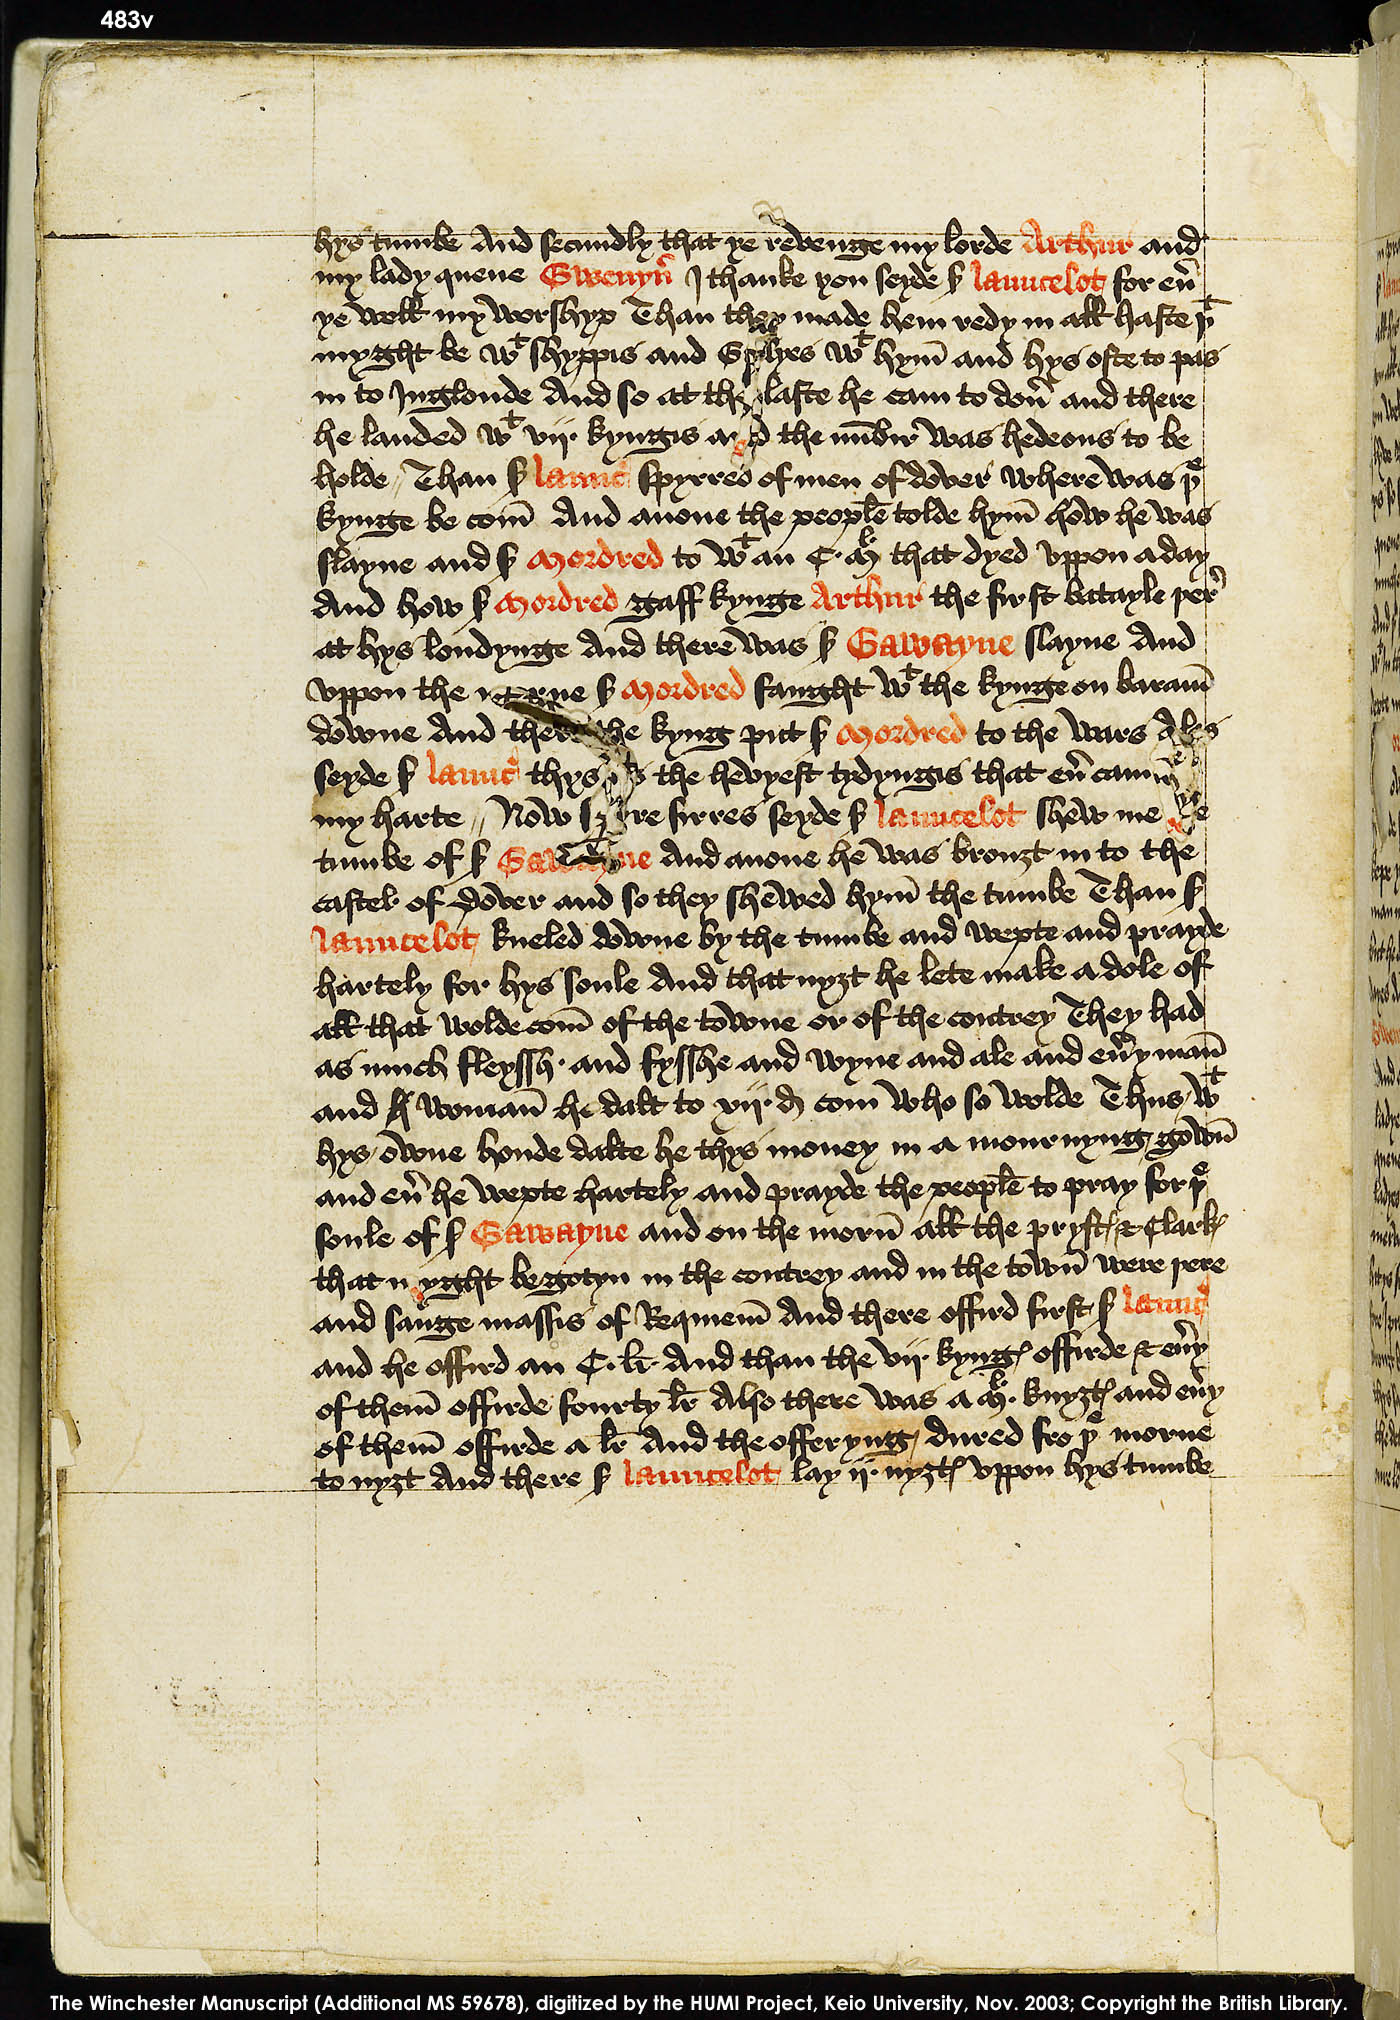 483v
hys tumbe And secundly that ye revenge my lorde Arthur and
my lady quene Gwenyu̅ I thanke you seyde ſ launcelot for eu̅
ye woll my worshyp Than they made hem redy in all haste þt
myght be wt shyppis and Galyes wt hym̅ and hys oste to pas
in to Inglonde And so at the laste he cam to dou̅ and there
he landed wt vij. kyngis and the nu̅bir was hedeous to be
holde // Than ſ launc̉ spyrred of men of dover where was þe
kynge be com̅ And anone the people tolde hym̅ how he was
slayne and ſ Mordred to wt an C. Ml that dyed vppon a day
And how ſ Mordred gaff kynge Arthur the first batayle þer̉
at hys londynge And there was ſ Gawayne slayne And
vppon the morne ſ Mordred faught wt the kynge on baram̅
downe And there the kyng put ſ Mordred to the wars Alas
seyde ſ launc̉ thys is the hevyest tydyngis that eu̅ cam
my harte // Now fayre sirres seyde ſ launcelot shew me the
tumbe of ſ Gawayne And anone he was brouȝt in to the
castel of Dover and so they shewed hym̅ the tumbe Than ſ
launcelot kneled downe by the tumbe and wepte and prayde
hartely for hys soule And that nyȝt he lete make a dole of
all that wolde com̅ of the towne or of the contrey They had
as much fleyssh. and fysshe and wyne and ale and eu̅y man̅
and woman̅ he dalt to xij. d com who so wolde Thus wt
hys owne honde dalte he thys money in a mournyng gown̅
and eu̅ he wepte hartely and prayde the people to pray for þe
soule of ſ Gawayne and on the morn̅ all the prystꝭ & Clarkꝭ
that myght be gotyn in the contrey and in the town̅ were þere
and sange massis of Requiem̅ And there offird first ſ launc̉
and he offird an C. li̅. And than the vij. kyngꝭ offirde & eu̅y
of them̅ offirde fourty li̅ Also there was a Ml. knyȝtꝭ and eu̅y
of them̅ offirde a li̅ And the offeryng dured fro þe morne
to nyȝt And there ſ launcelot lay ij. nyȝtꝭ vppon hys tumbe
The Winchester Manuscript (Additional MS 59678), digitized by the HUMI Project, Keio University, Nov. 2003; Copyright the British Library.